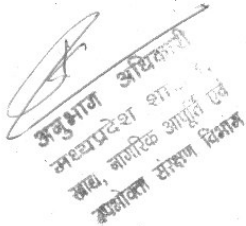 अनुभाग अधिकारी
मध्यप्रदेश शा
खाद्य, नागरिक आपूर्ति एवं
उपभोक्ता संरक्षण विभाग